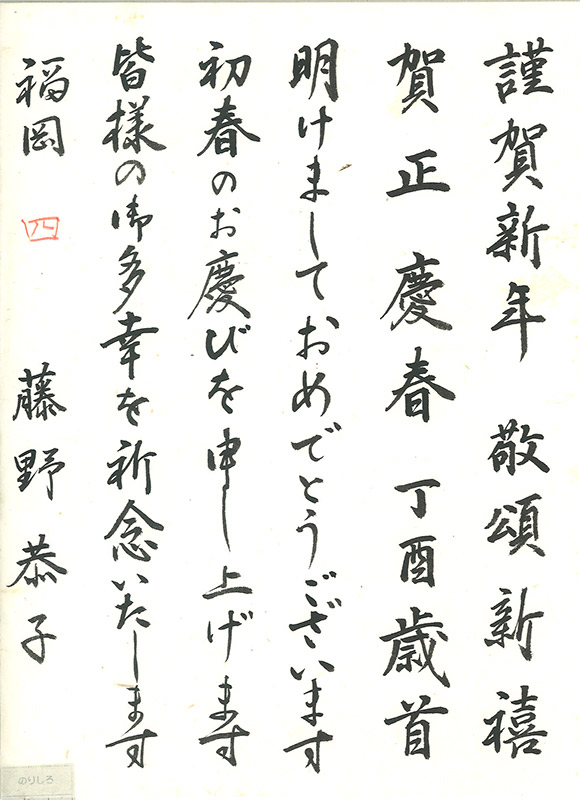 謹賀新年　敬頌新禧
賀正　慶春　丁酉歳首
明けましておめでとうございます
初春のお慶びを申し上げます
皆様の御多幸を祈念いたします
福岡　四　藤野恭子
のりしろ